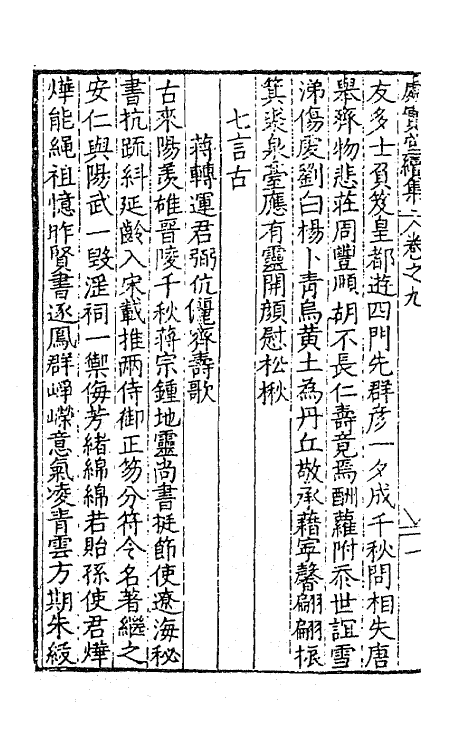 處實堂續集 卷之九
友多士負笈皇都遊四門先群彦一夕成千秋問相失唐
舉齊物悲莊周豐順胡不長仁壽竟焉酬蘿附忝世誼雪
涕傷虔劉白楊卜青烏黃土為丹丘敬承藉寧馨翩翩振
箕裘泉臺應有靈開顏慰松楸
七言古
蔣轉運君弼伉儷齊壽歌
古來陽羨雄晉陵千秋蔣宗鍾地靈尚書挺節使遼海秘
書抗疏糾延齡入宋載推兩侍御正笏分符令名著繼之
安仁與陽武一毁淫祠一禦侮芳緒綿綿若貽孫使君燁
燁能繩祖憶昨賢書逐鳳群崢嶸意氣凌青雲方期朱綬